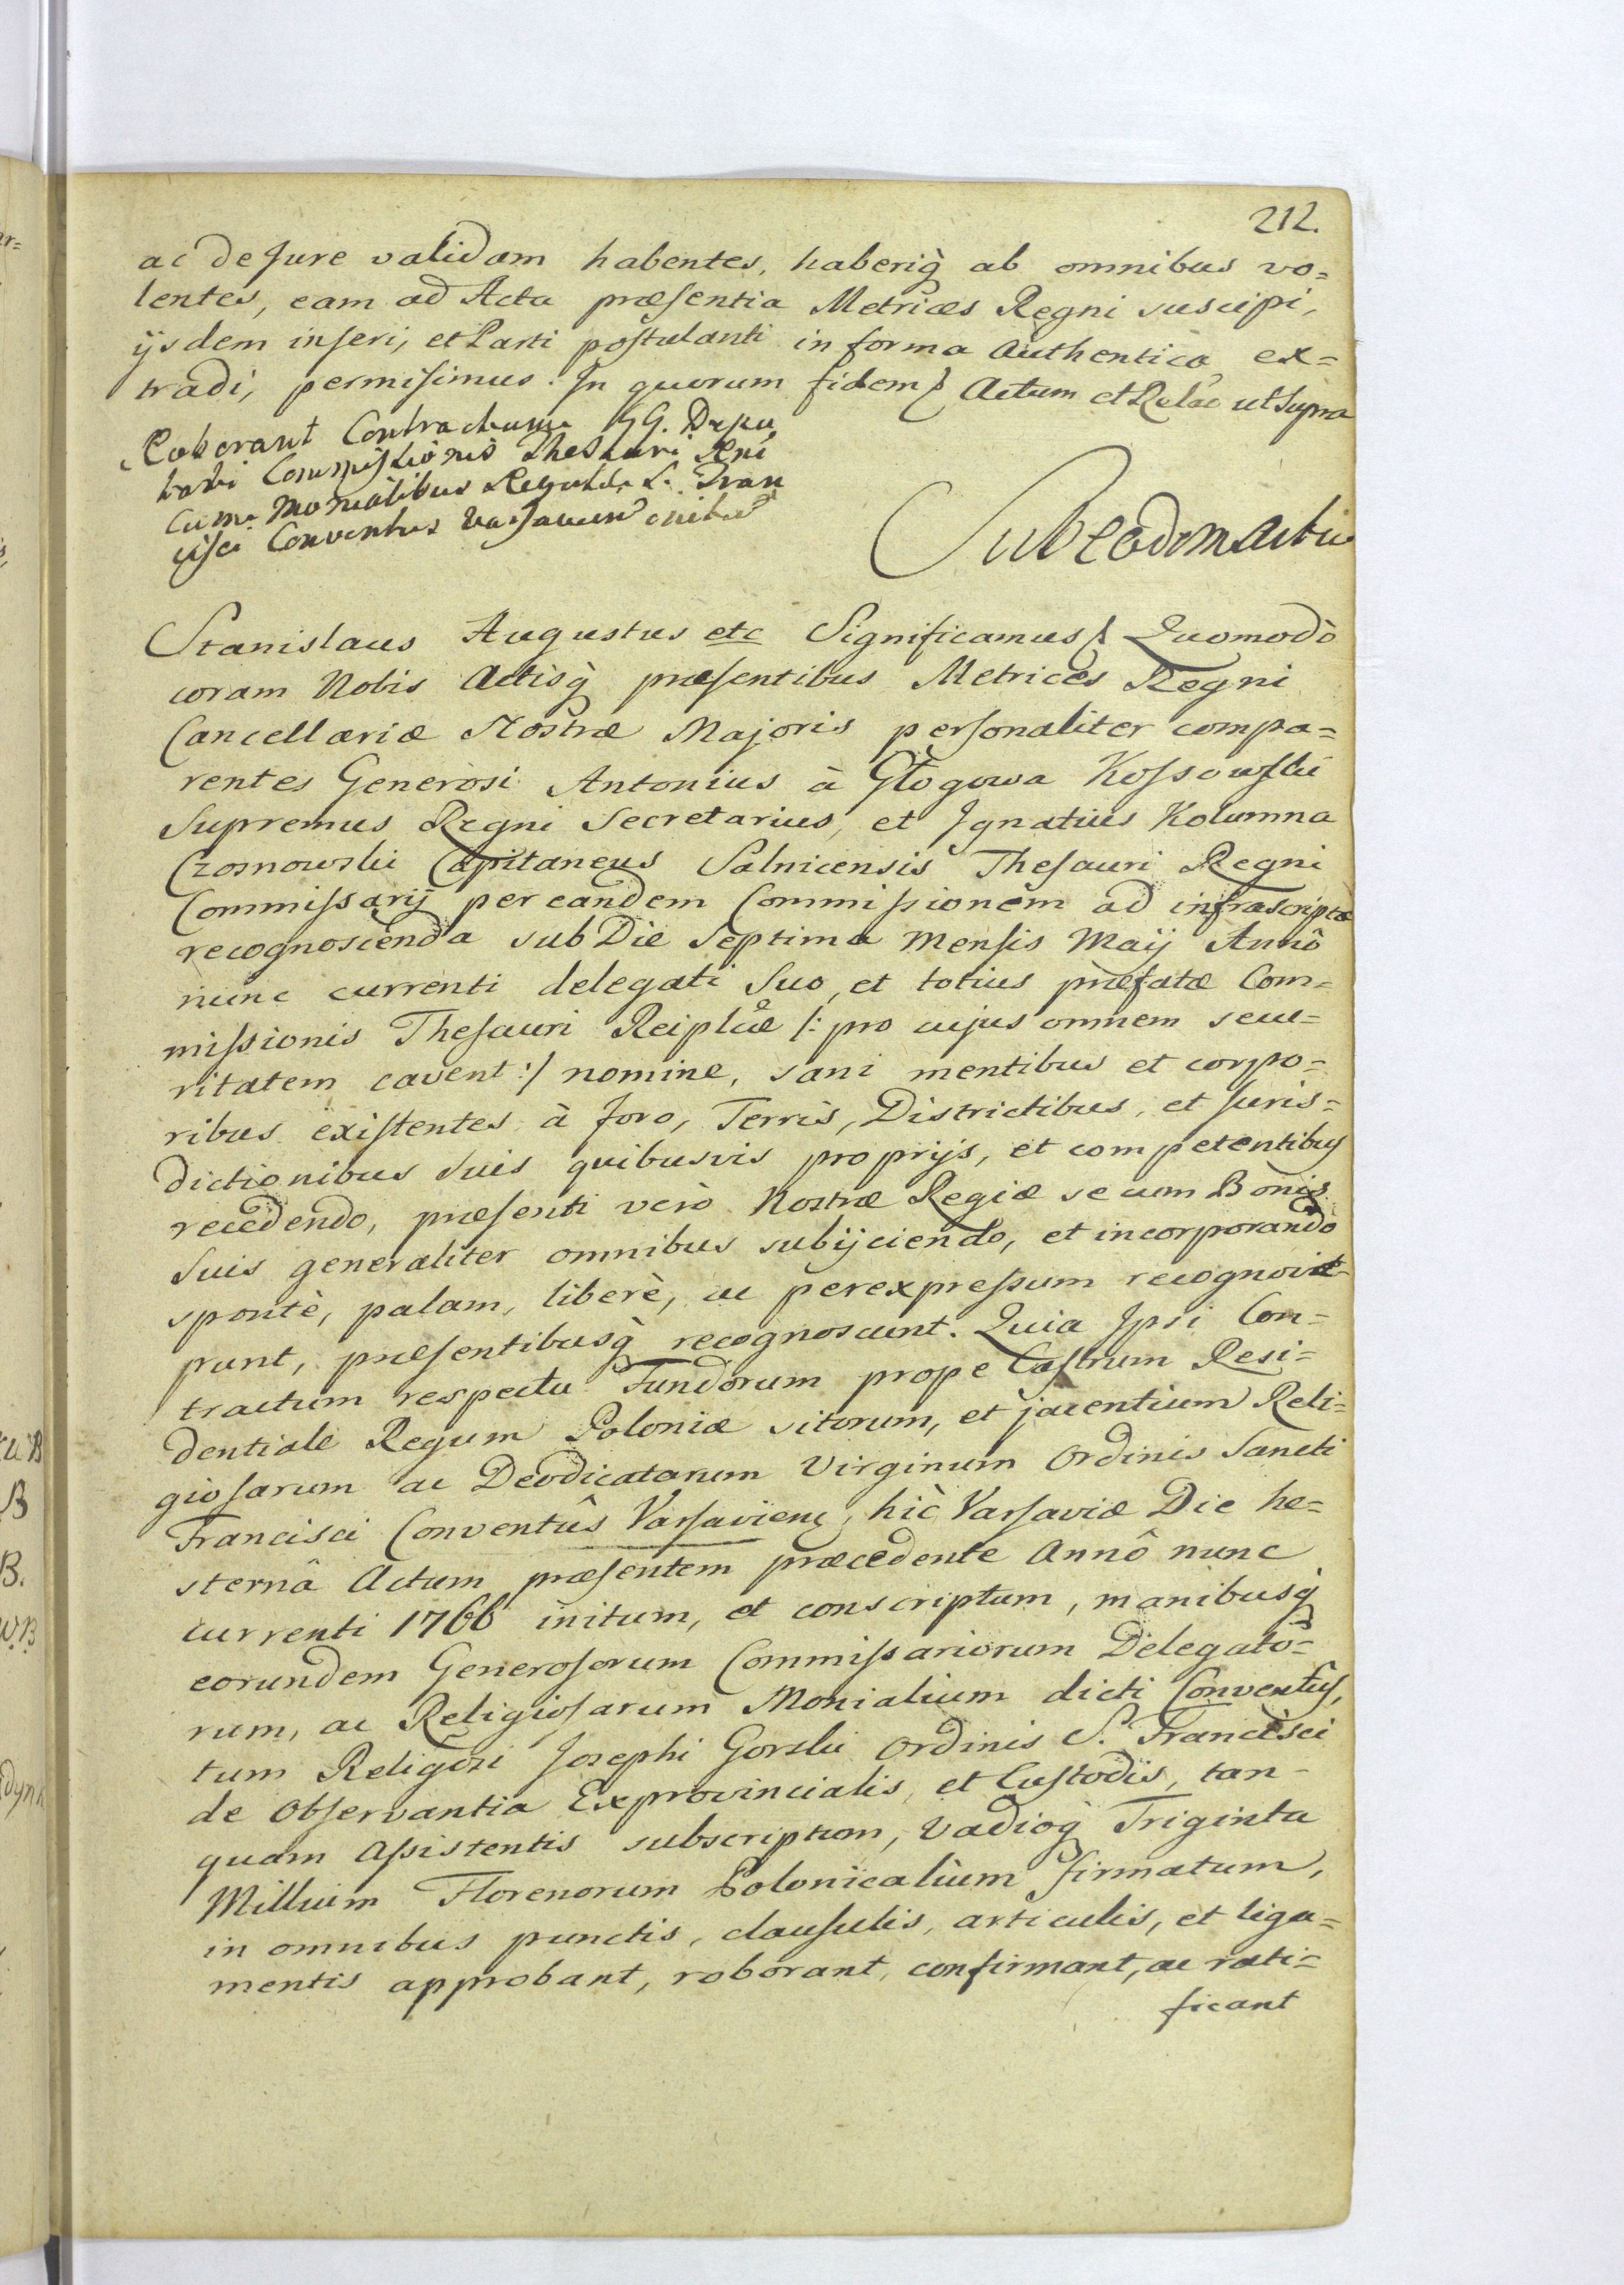 212.
ac de Jure validam habentes, haberiq̀ ab omnibus vo=
lentes, eam ad Acta præsentia Metrices Regni suscipi,
ijsdem inseri, et Parti postulanti in forma Authentica ex=
tradi, permisimus. In quorum fidem Actum et Relãõ ut Supra
Roborant Contractum GG. Depu
tati Commissionis Thesauri Rni
cum Monialibus Regulæ S. Fran
cisci Conventus Varsavien initum
Sub eodem Actu
Stanislaus Augustus etc Significamus Quomodò
coram Nobis Actisq̀ præsentibus Metrices Regni
Cancellariæ Nostræ Majoris personaliter compa=
rentes Generosi Antonius à Głogowa Kossowski
Supremus Regni Secretarius, et Ignatius Kolumna
Czosnowski Capitaneus Salnicensis Thesauri Regni
Commissarij per eandem Commissionem ad infrascripta
recognoscenda sub Die Septima Mensis Maij Annô
nunc currenti delegati Suo, et totius præfatæ Com=
missionis Thesauri Reiplcæ /: pro cujus omnem secu=
ritatem cavent :/ nomine, sani mentibus et corpo=
ribus existentes à foro, Terris, Districtibus, et Juris=
dictionibus Suis quibusvis proprijs, et competentibus
recedendo, præsenti verò Nostræ Regiæ se cum Bonis
Suis generaliter omnibus subijciendo, et incorporando
spontè, palam, liberè, ac per expressum recognove=
runt, præsentibusq̀ recognoscunt. Quia Ipsi Con=
tractum respectu Fundorum prope Castrum Resi=
dentiale Regum Poloniæ sitorum, et jacentium Reli=
giosarum ac Deodicatarum Virginum Ordinis Sancti
Francisci Conventûs Varsavieng, hìc Varsaviæ Die he=
sternâ Actum præsentem præcedente Annô nunc
currenti 1766 initum, et conscriptum, manibusq̀
eorundem Generosorum Commissariorum Delegato=
rum, ac Religiosarum Monialium dicti Conventûs,
tum Religiosi Josephi Gorski Ordinis S. Francisci
de Observantia Exprovincialis, et Custodis, tan=
quam Assistentis subscriptum, Vadioq̀ Triginta
Millium Florenorum Polonicalium firmatum,
in omnibus punctis, clausulis, articulis, et liga=
mentis approbant, roborant, confirmant, ac rati=
ficant